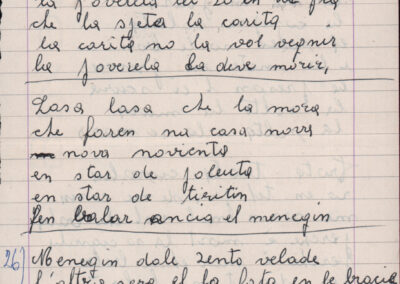 la poverela lei zo en
che la speta la carita
la carita no la vol vegnir
la poverela la deve morir,
Lasa lasa che la mora
che faren na casa nova
nova novienta
en star de polenta
en star de tiritin
fen balar ancia el menegin
26) Menegin dale zento velade
l'altra sera el la